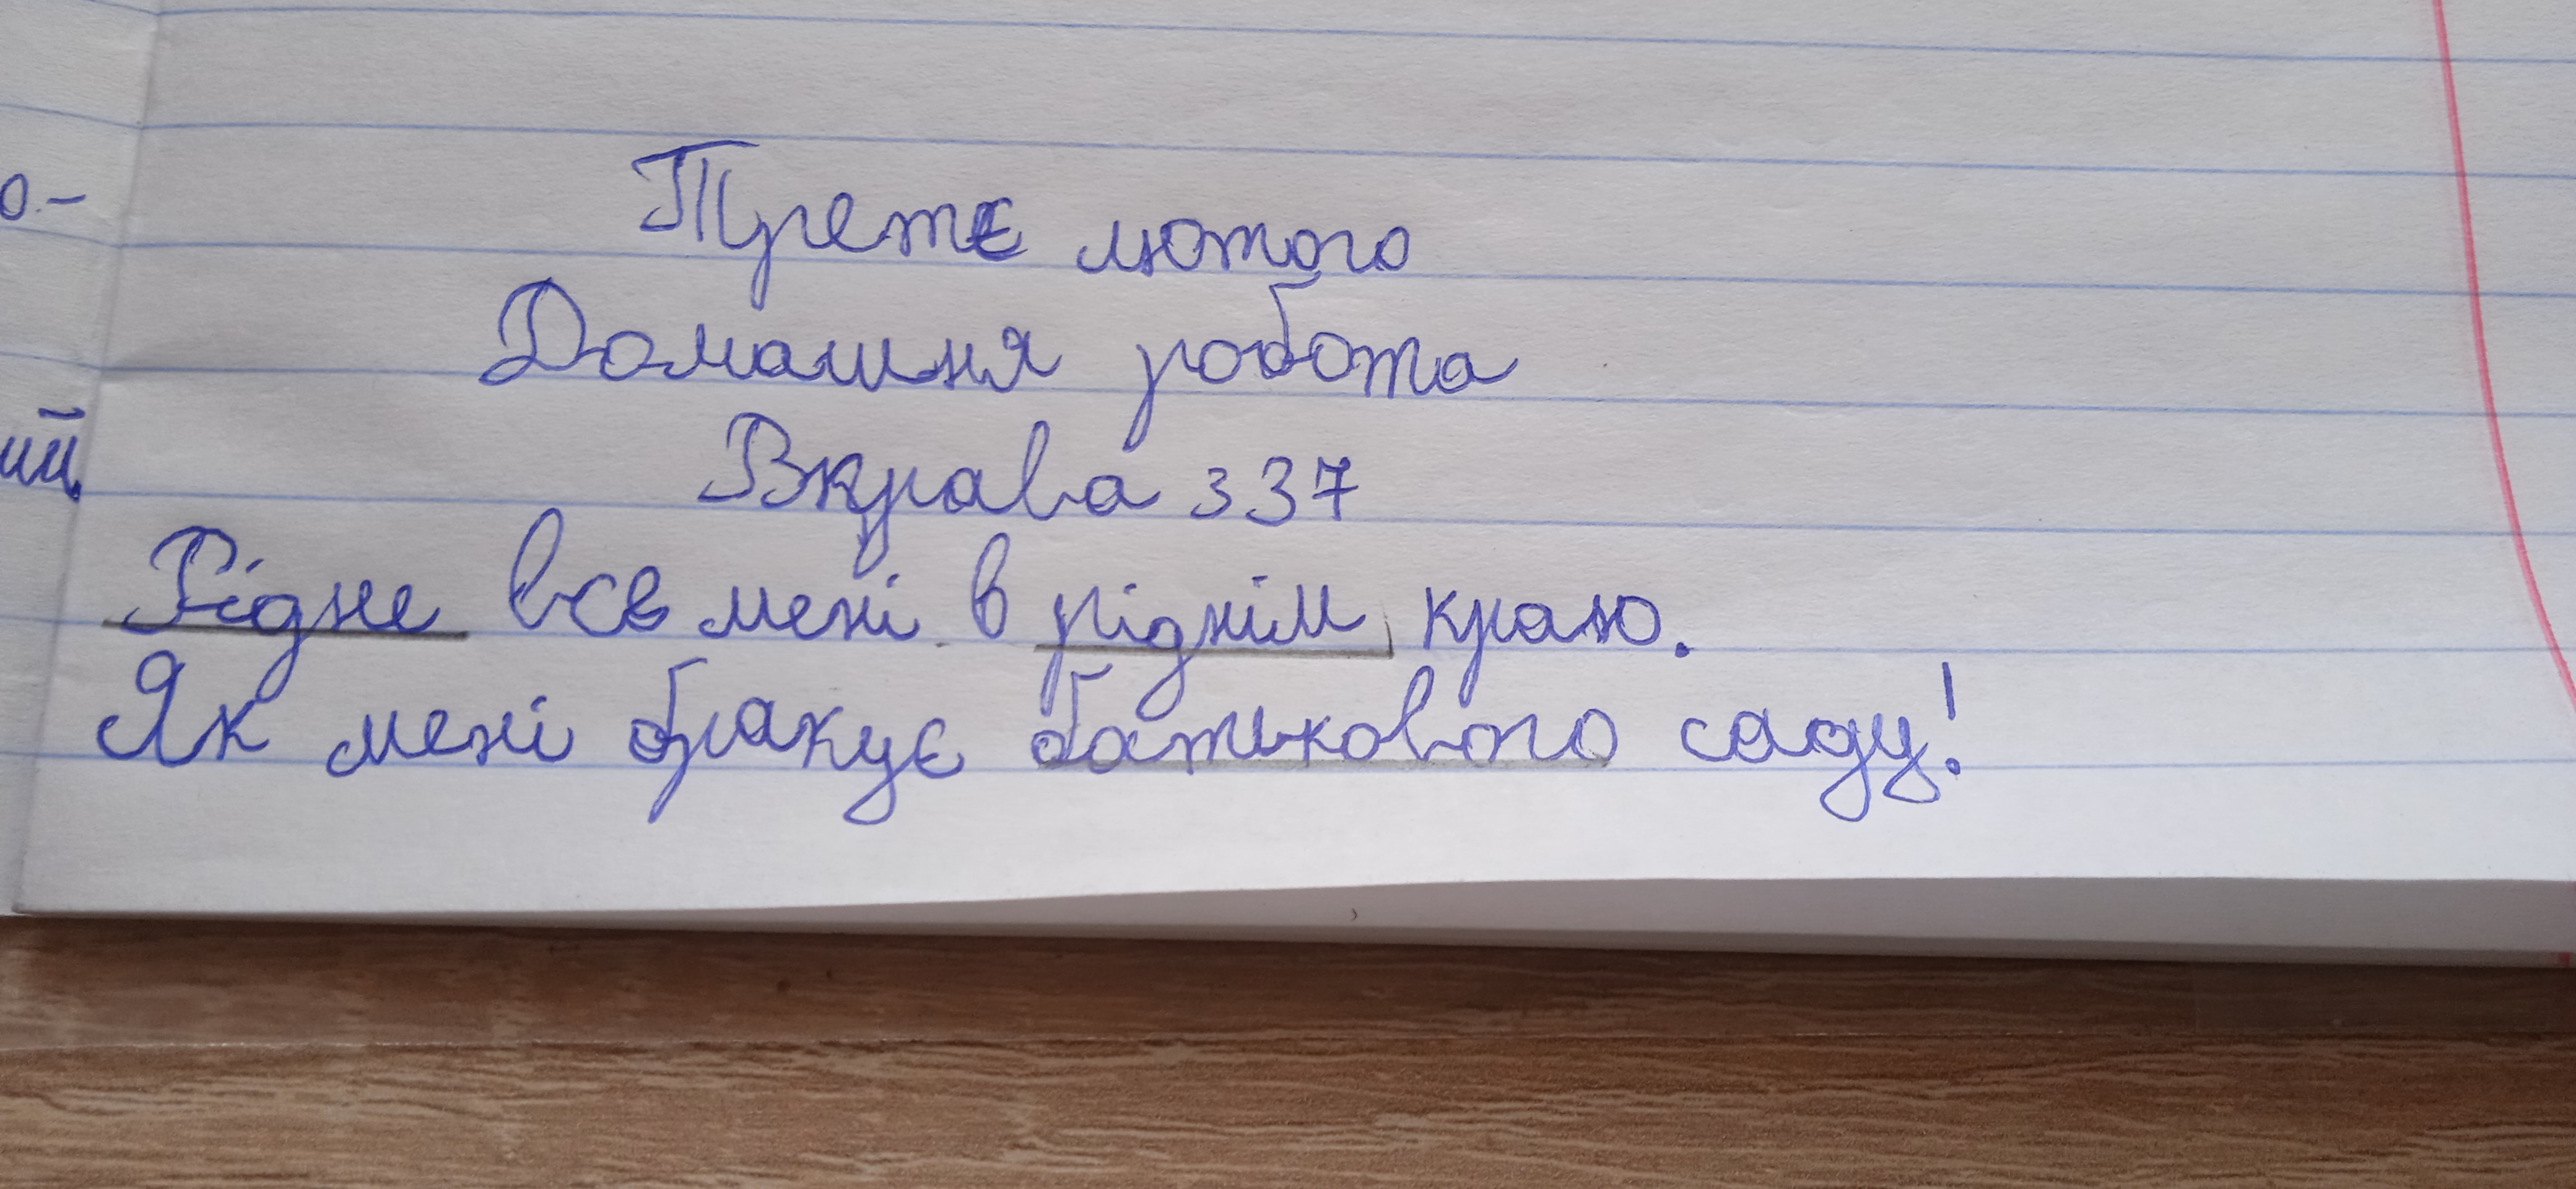 Третє лютого
Домашня робота
Вкрава 337
о.-
ий
Рідне все мені в ріднім краю.
Як мені бракує батькового саду!